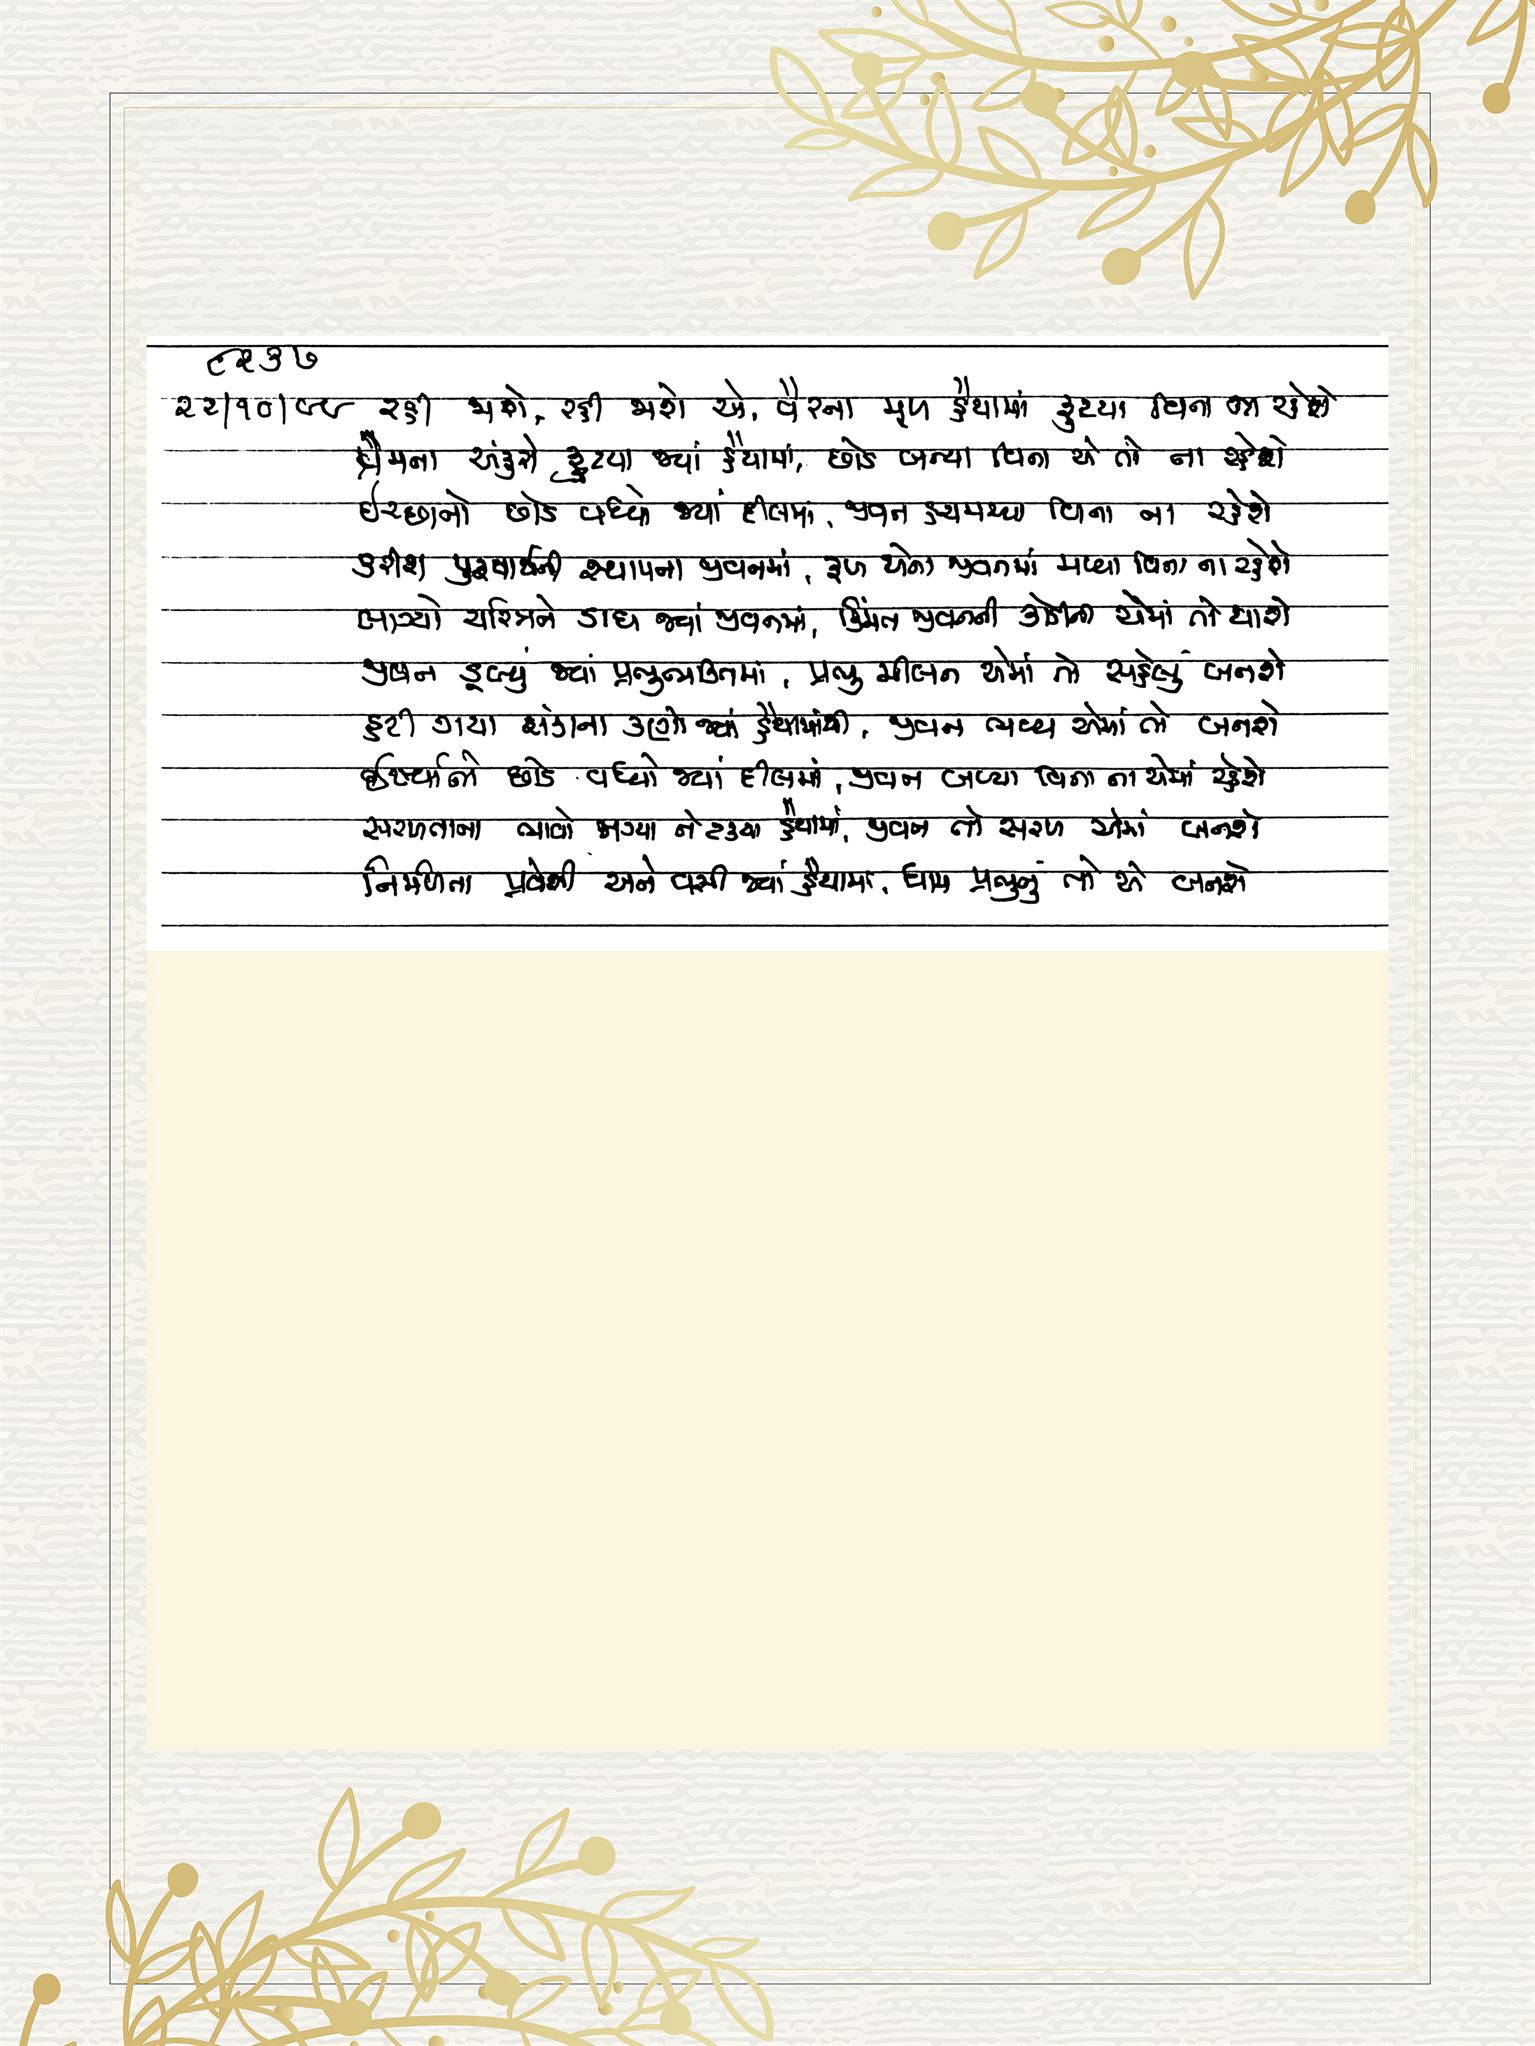 ૮૨૩૭
૨૨/૧૦/૯૯ રહી જાશે, રહી જાશે એ, વૈરના મૂળ હૈયામાં ફુટયા વિના ના રહેશે
પ્રેમના અંકુરો ફૂટયા જ્યાં હૈયામાં, છોડ બન્યા વિના એ તો ના રહેશે
ઈર્ચ્છાનો છોડ વધ્યો જ્યાં દીલમાં, જીવન વિના ના રહેશે
કરીશ પુરુષાર્થની સ્થાપના જીવનમાં, ફળ એના જીવનમાં મળ્યા વિના ના રહેશે
લાગ્યો ચરિત્રને ડાઘ જ્યાં જીવનમાં, કિંમત જીવનની કોડીની એમાં તો થાશે
જીવન ડૂબ્યું જ્યાં પ્રભુભક્તિમાં, પ્રભુ મીલન એમાં તો સહેલું બનશે
હટી ગયા શંકાના જ્યાં હૈયામાંથી, જીવન ભવ્ય એમાં તો બનશે
ઈર્ષ્યાનો છોડ વધ્યો જ્યાં દીલમાં, જીવન બળ્યા વિના ના એમાં રહેશે
સરળતાના ભાવો જાગ્યા ને ટક્યા હૈયામાં, જીવન તો સરળ એમાં બનશે
નિર્મળતા પ્રવેશી અને વસી જ્યાં હૈયામાં, ધામ પ્રભુનું તો એ બનશે